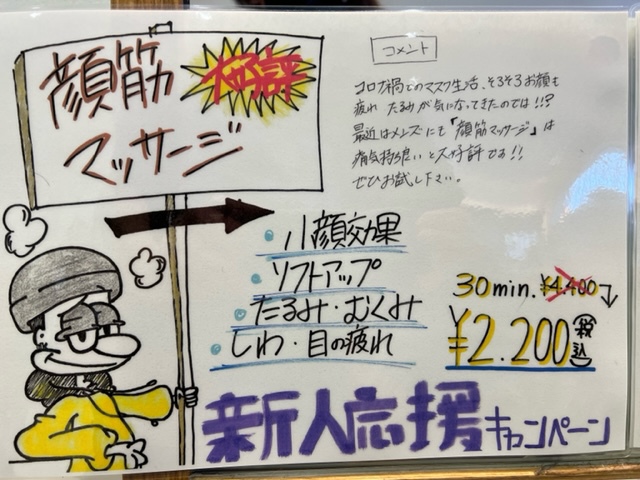 顔筋
マッサージ
大好評
コメント
コロナ禍でのマスク生活、そろそろお顔も
疲れ たるみが気になってきたのでは!!?
最近はメンズにも「顔筋マッサージ」は
痛気持ち良いと大好評です!!
ぜひお試し下さい。
・小顔効果
・リフトアップ
・たるみ・むくみ
・しわ・目の疲れ
30min. ¥4.400
¥2.200 税込
新人応援キャンペーン